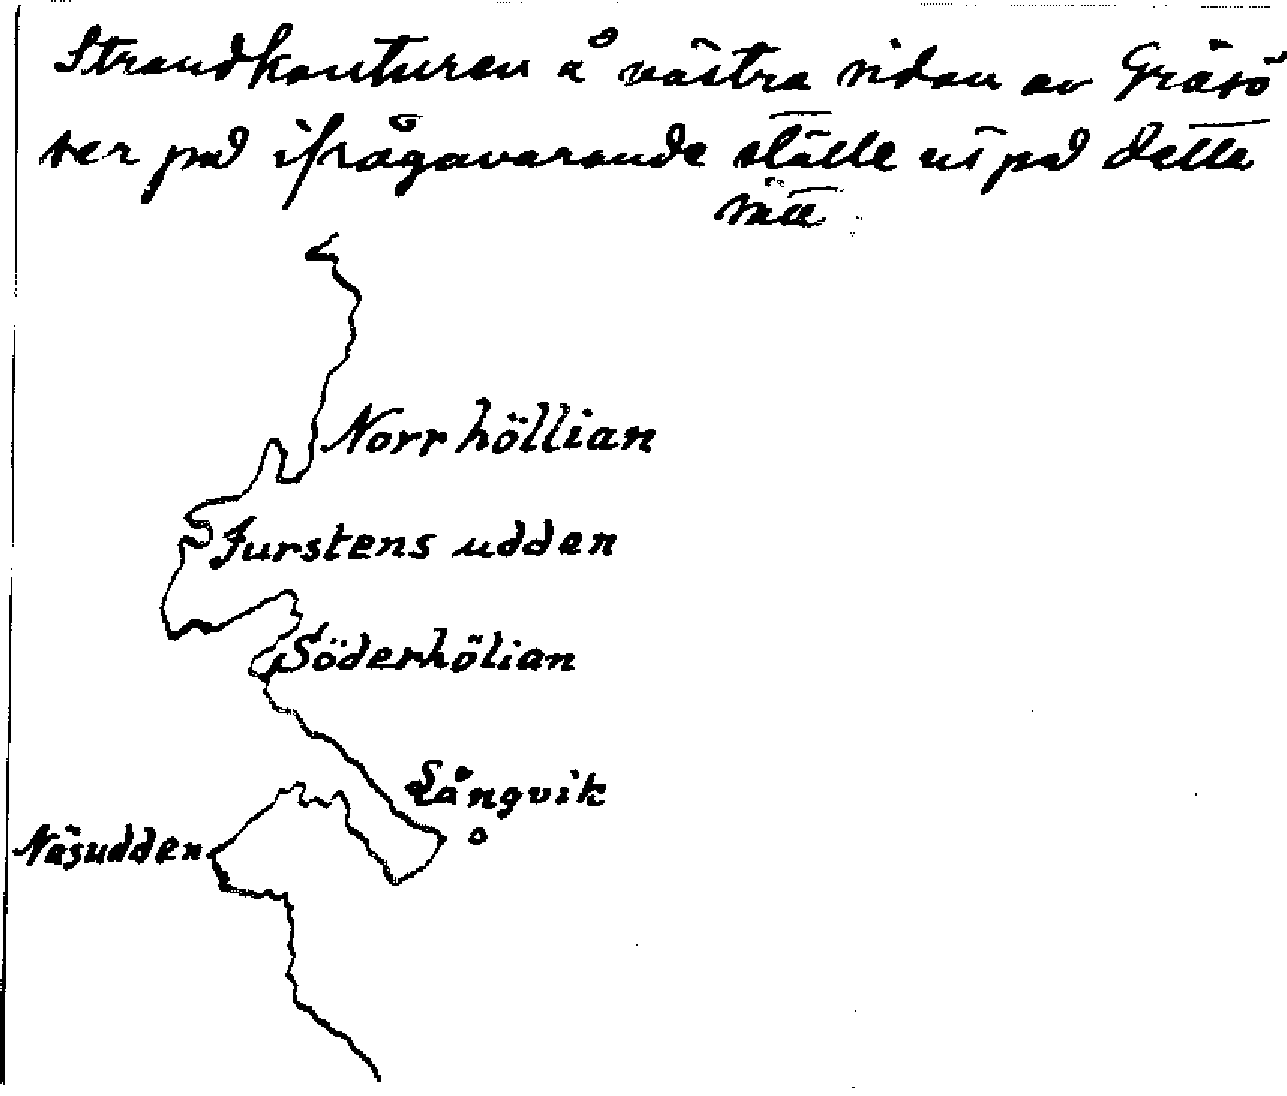 Strandkonturen å västra sidan av Gräsö
ser på ifrågavarande ställe ut på detta
sätt
Norrhöllian
Furstens udden
Söderhölian
Långvik
Näsudden